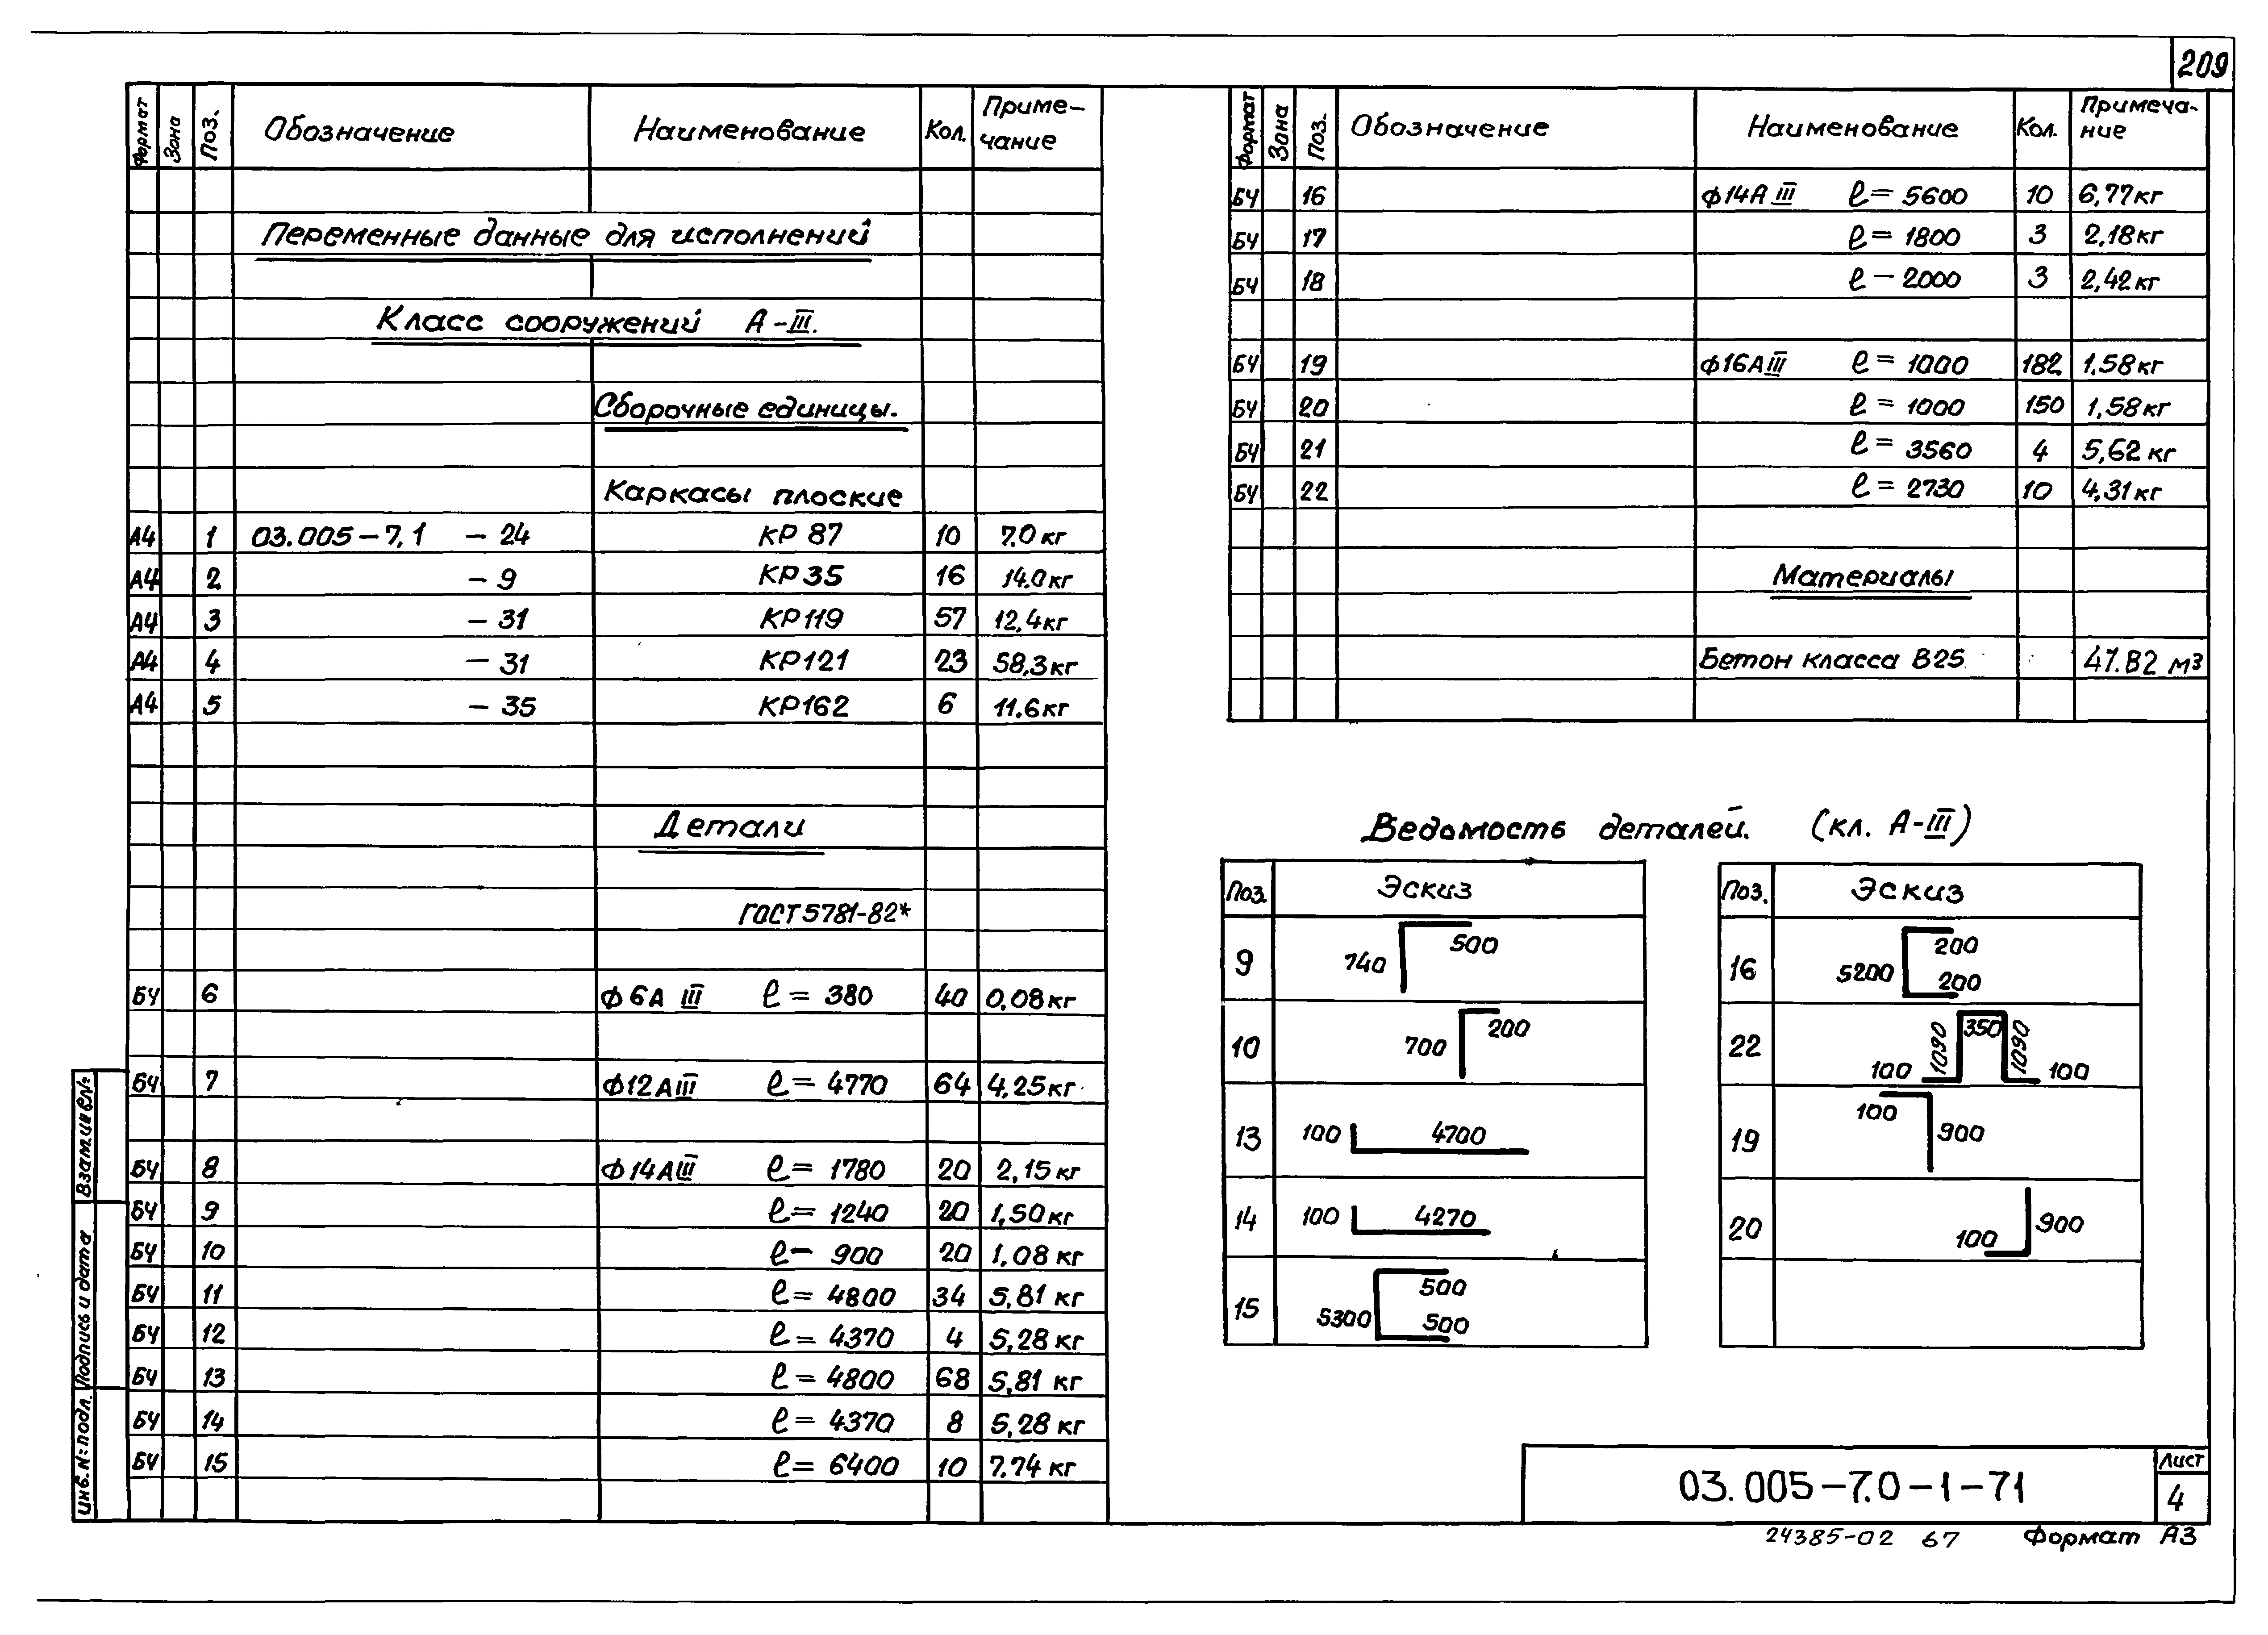 209
Формат Зона Поз. Обозначение Наименование Кол. Приме-
чание
Переменные данные для исполнений
Класс сооружений А-III.
Сборочные единицы.
Каркасы плоские
А4 1 03.005-7,1 - 24 КР 87 10 7.0 кг
А4 2 - 9 КР 35 16 14.0 кг
А4 3 - 31 КР 119 57 12,4 кг
А4 4 - 31 КР 121 23 58,3 кг
А4 5 - 35 КР 162 6 11.6 кг
Детали
ГОСТ 5781-82*
БЧ 6 ф 6А III ℓ = 380 40 0,08 кг
БЧ 7 ф12А III ℓ = 4770 64 4,25 кг
БЧ 8 ф14А III ℓ = 1780 20 2,15 кг
БЧ 9 ℓ = 1240 20 1,50 кг
БЧ 10 ℓ - 900 20 1.08 кг
БЧ 11 ℓ = 4800 34 5.81 кг
БЧ 12 ℓ = 4370 4 5,28 кг
БЧ 13 ℓ = 4800 68 5,81 кг
БЧ 14 ℓ = 4370 8 5,28 кг
БЧ 15 ℓ = 6400 10 7.74 кг
Формат Зона Поз. Обозначение Наименование Кол. Примеча-
ние
БЧ 16 ф14А III ℓ = 5600 10 6,77 кг
БЧ 17 ℓ = 1800 3 2,18 кг
БЧ 18 ℓ - 2000 3 2,42 кг
БЧ 19 ф16А III ℓ = 1000 182 1.58 кг
БЧ 20 ℓ = 1000 150 1,58 кг
БЧ 21 ℓ = 3560 4 5,62 кг
БЧ 22 ℓ = 2730 10 4,31 кг
Материалы
Бетон класса В25 47.82 м³
Ведомость деталей. (кл. А-III)
Поз. Эскиз
9 740 500
10 700 200
13 100 4700
14 100 4270
15 5300 500 500
Поз. Эскиз
16 5200 200 200
22 100 1090 350 1090 100
19 100 900
20 100 900
Взам. инв.№
Подпись и дата
Инв. № подл.
03.005-7.0-1-71
Лист
4
24385-02 67 Формат А3